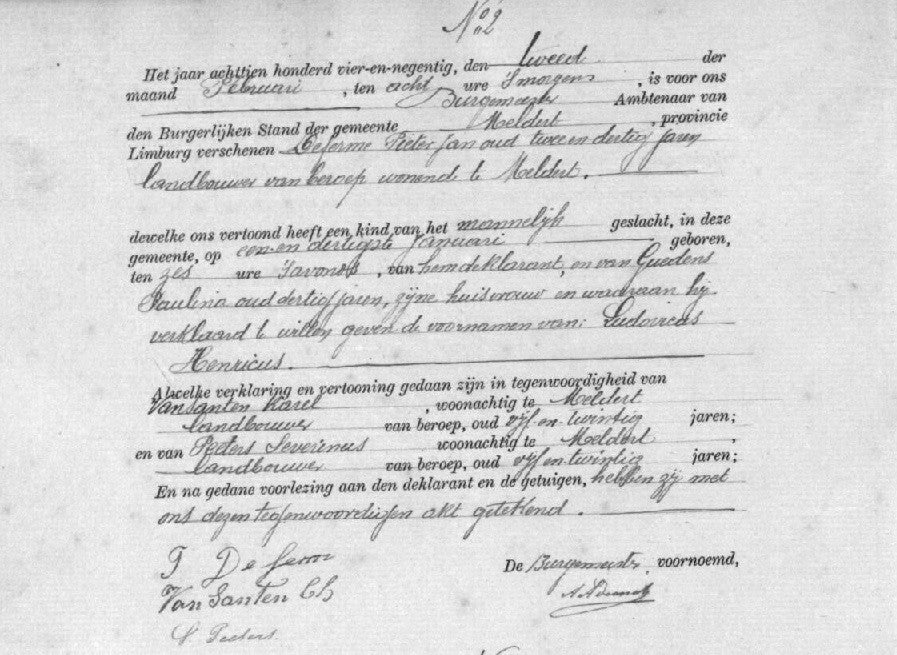 No 2
Het jaar achttien honderd vier-en-negentig, den tweed der
maand Februari, ten acht ure Smorgens, is voor ons
Burgemeester Ambtenaar van
den Burgerlijken Stand der gemeente Meldert, provincie
Limburg verschenen Deferme Pieter Jan oud twee en dertig jaren
landbouwer van beroep wonend te Meldert.
dewelke ons vertoond heeft een kind van het mannelijk geslacht, in deze
gemeente, op een en dertigste Januari geboren,
ten zes ure Savonds, van hem deklarant, en van Guedens
Paulina oud dertig jaren, zijne huisvrouw en waaraan hij
verklaard te willen geven de voornamen van: Ludovicus
Henricus.
Alwelke verklaring en vertooning gedaan zijn in tegenwoordigheid van
Vansanten Karel, woonachtig te Meldert
landbouwer van beroep, oud vijf en twintig jaren;
en van Peeters Severinus woonachtig te Meldert,
landbouwer van beroep, oud vijf en twintig jaren;
En na gedane voorlezing aan den deklarant en de getuigen, hebben zij met
ons dezen tegenwoordigen akt geteekend.
De Burgemeester, voornoemd,
Van Santen Ch
S. Peeters